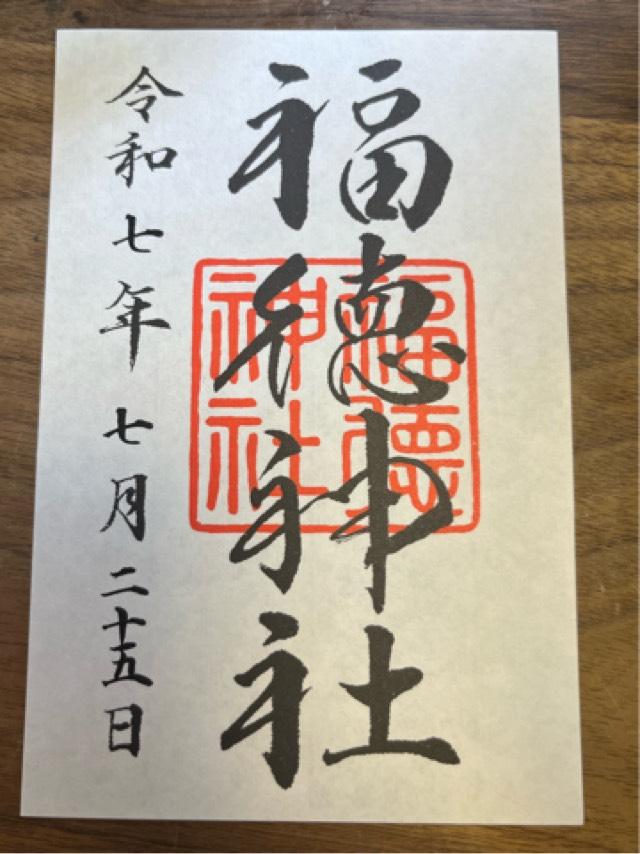 福徳神社
福徳神社
令和七年七月二十五日